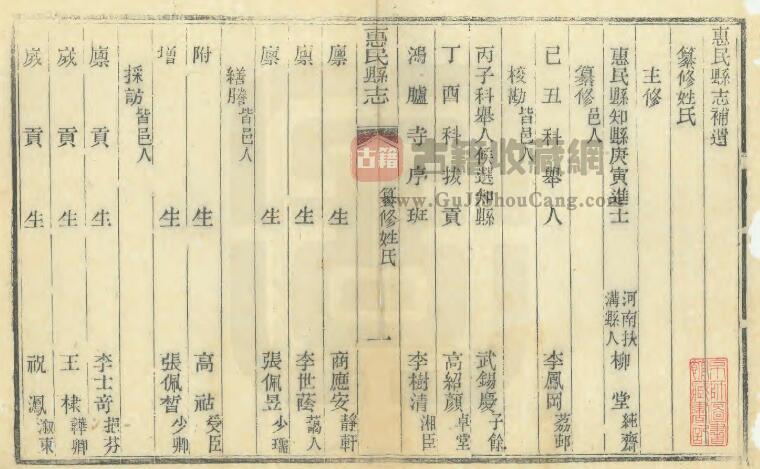 惠民縣志補遺
纂修姓氏
主修
惠民縣知縣庚寅進士 河南扶溝縣人 柳堂 純齋
纂修 邑人
己丑科舉人 李鳳岡 荔邨
校勘 皆邑人
丙子科舉人候選知縣 武錫慶 子餘
丁酉科拔貢 高紹顏 卓堂
鴻臚寺序班 李樹清 湘臣
惠民縣志 纂修姓氏 一
廩生 商應安 靜軒
廩生 李世蔭 藹人
廩生 張佩昱 少瑞
繕謄 皆邑人
附生 高祜 受臣
增生 張佩晳 少卿
採訪 皆邑人
廩貢生 李士奇 挹芬
歲貢生 王棣 韡卿
歲貢生 祝鳳 淑東
古籍
古籍收藏網
www.GuJiShouCang.com